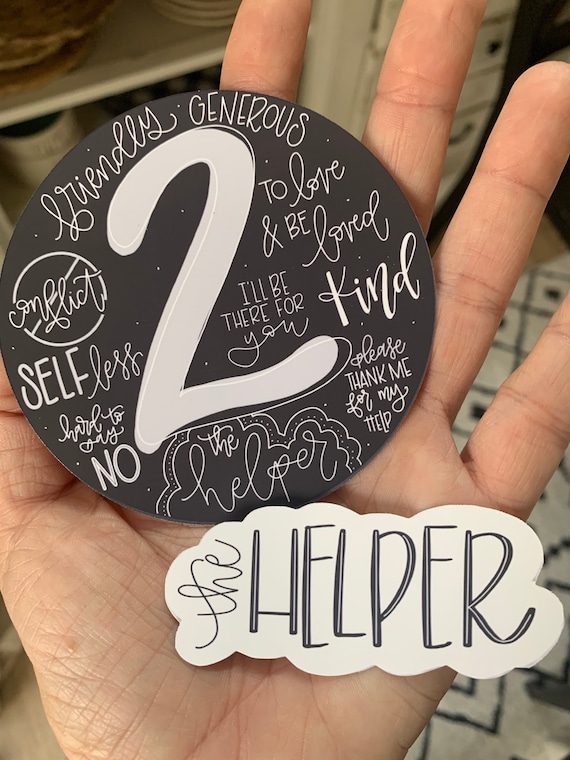 friendly GENEROUS
2
TO love
& BE loved
conflict
I'LL BE
THERE FOR
you
Kind
SELFless
please
THANK ME
for my
HELP
hard to
say
NO
the
helper
the HELPER